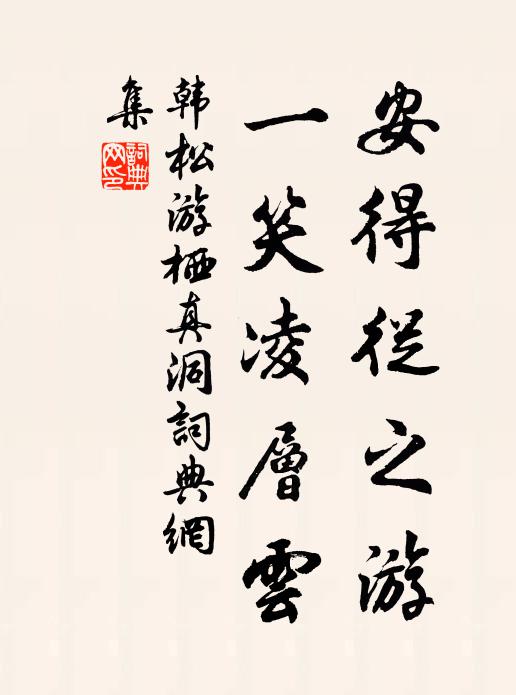 安得從之游
一笑凌層雲
韩松游栖真洞詞典網
集
詞典網印